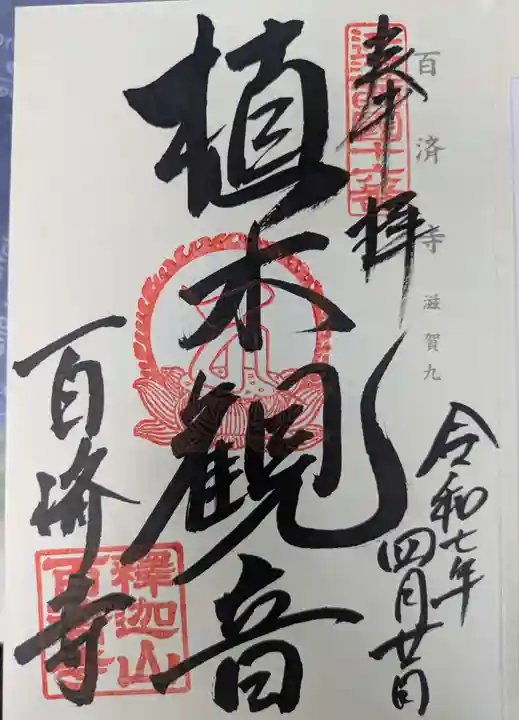 百済寺 滋賀九
奉拝
令和七年
四月廿日
植木観音
百済寺
近江西国十六番
釋迦山
百済寺